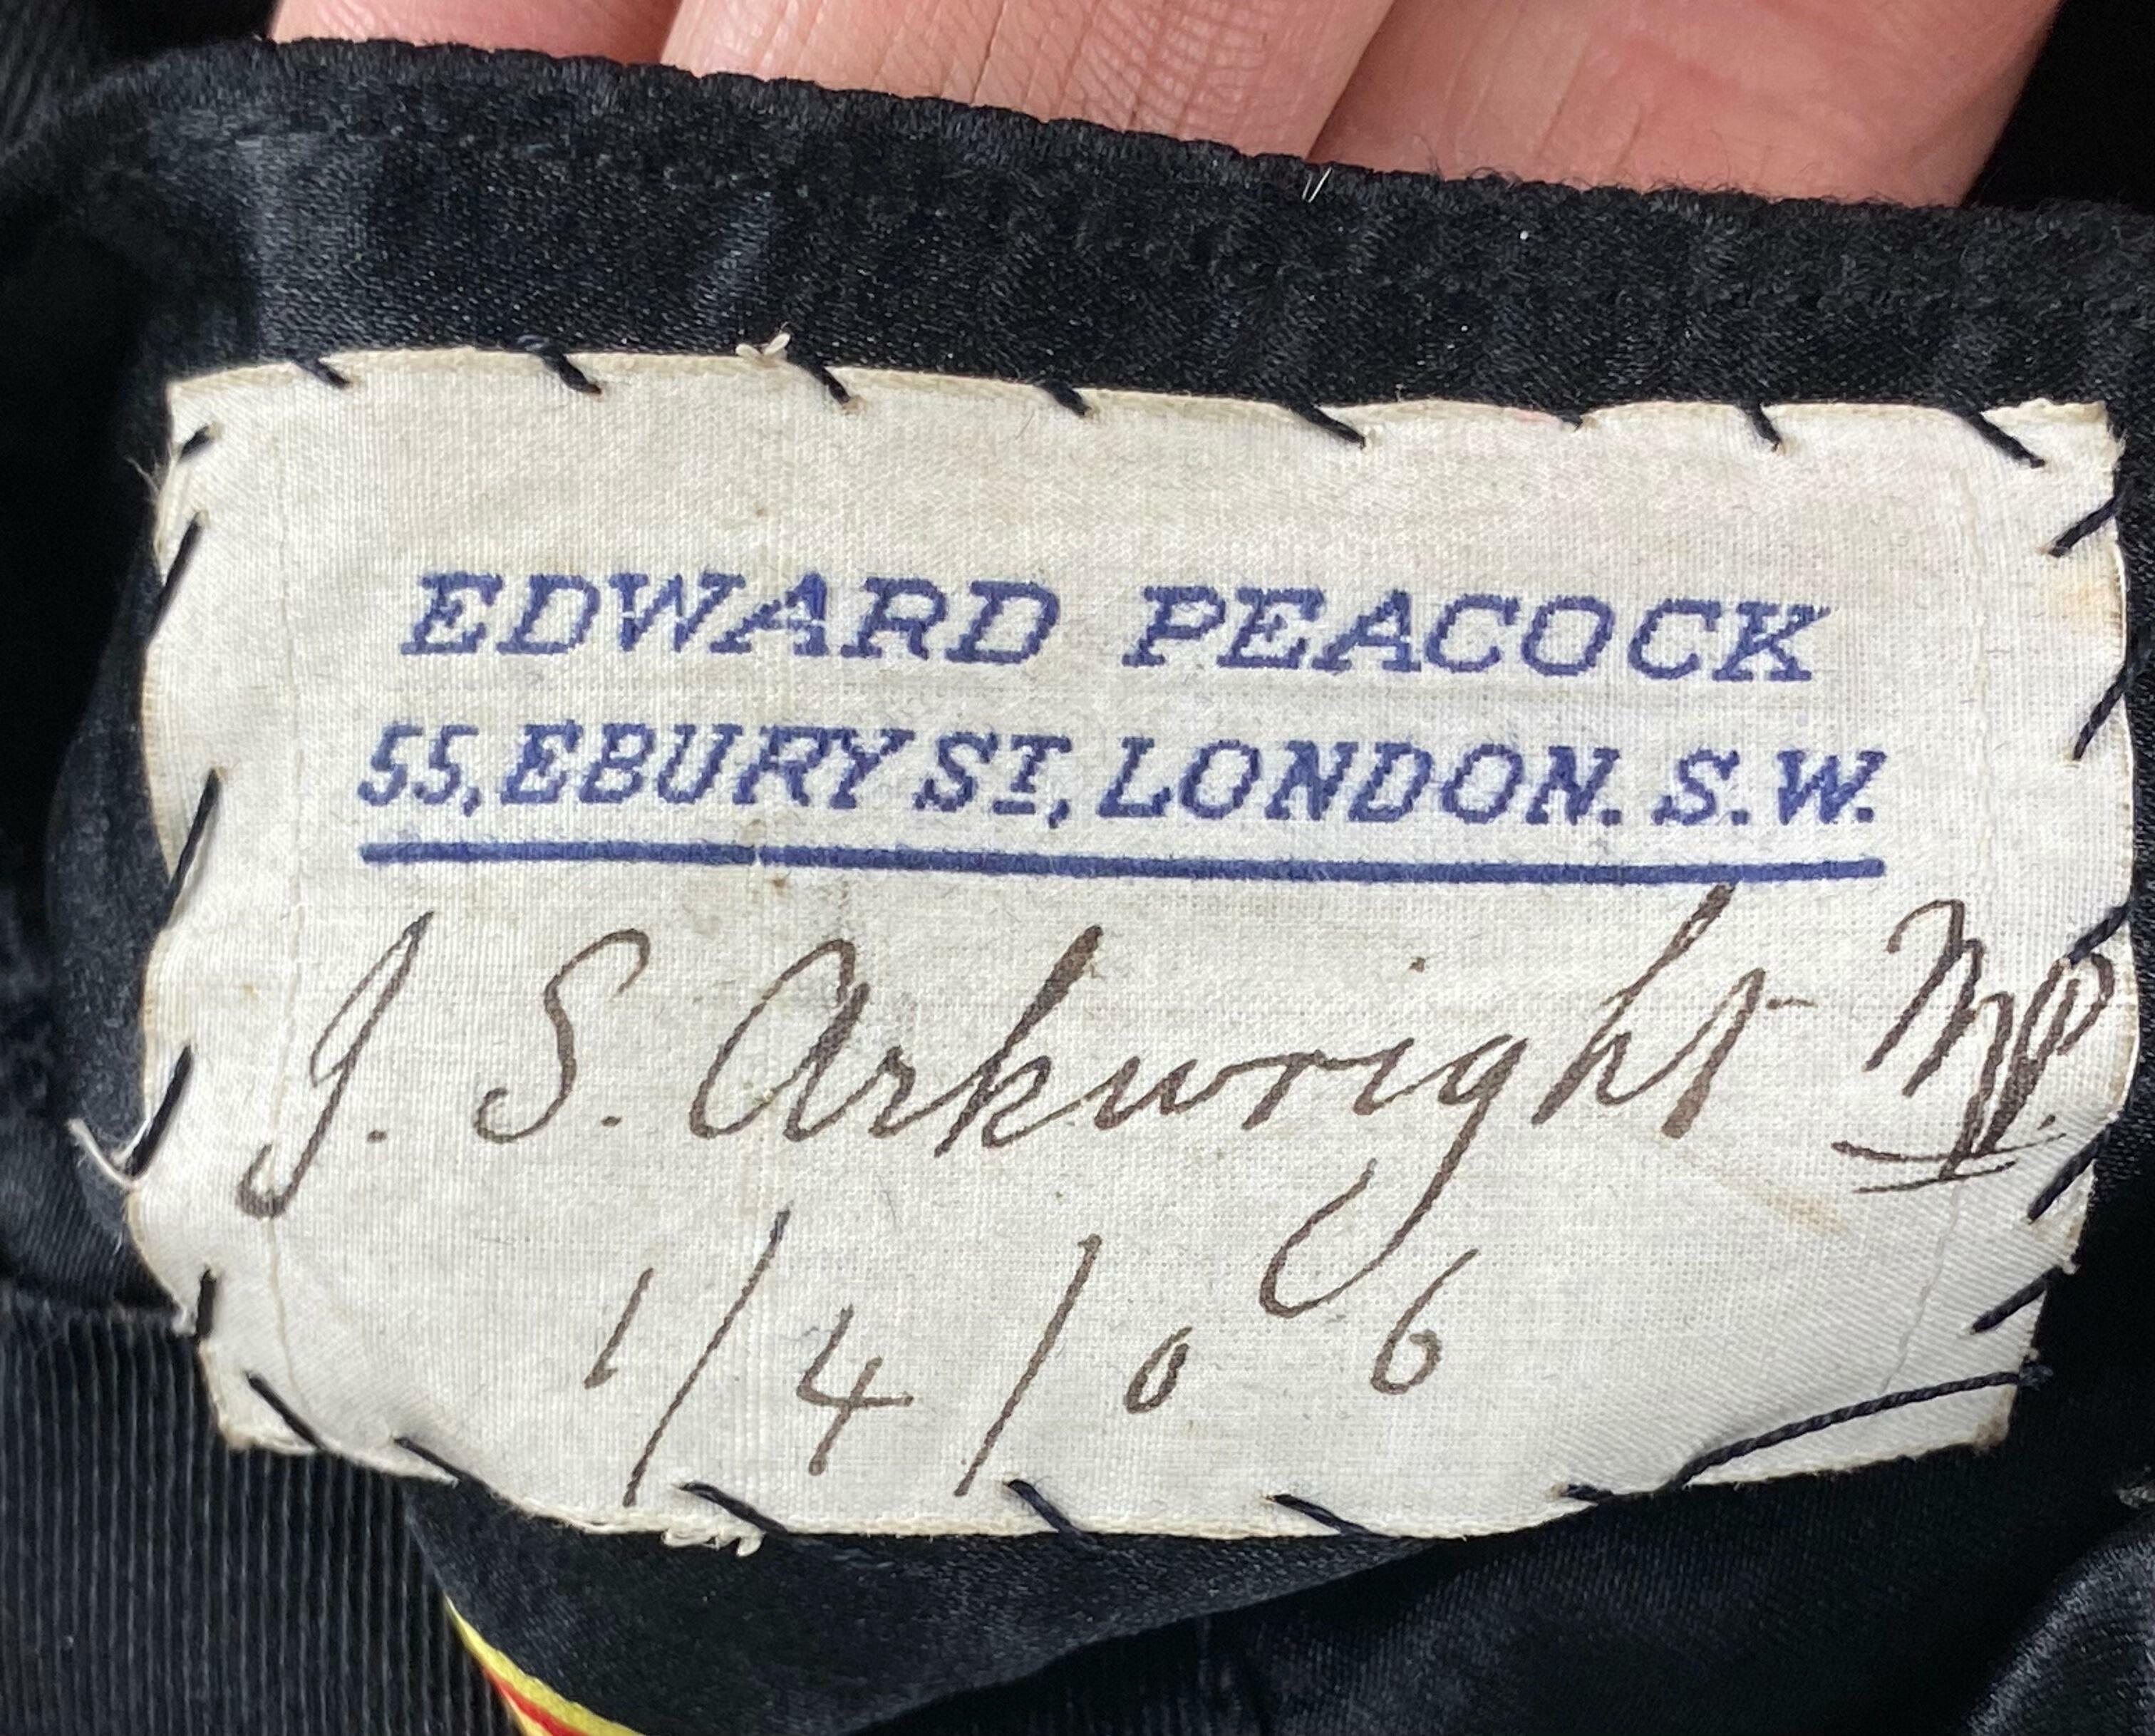 EDWARD PEACOCK
55, EBURY ST, LONDON. S.W.
J. S. Arkwright MP.
1/4/06